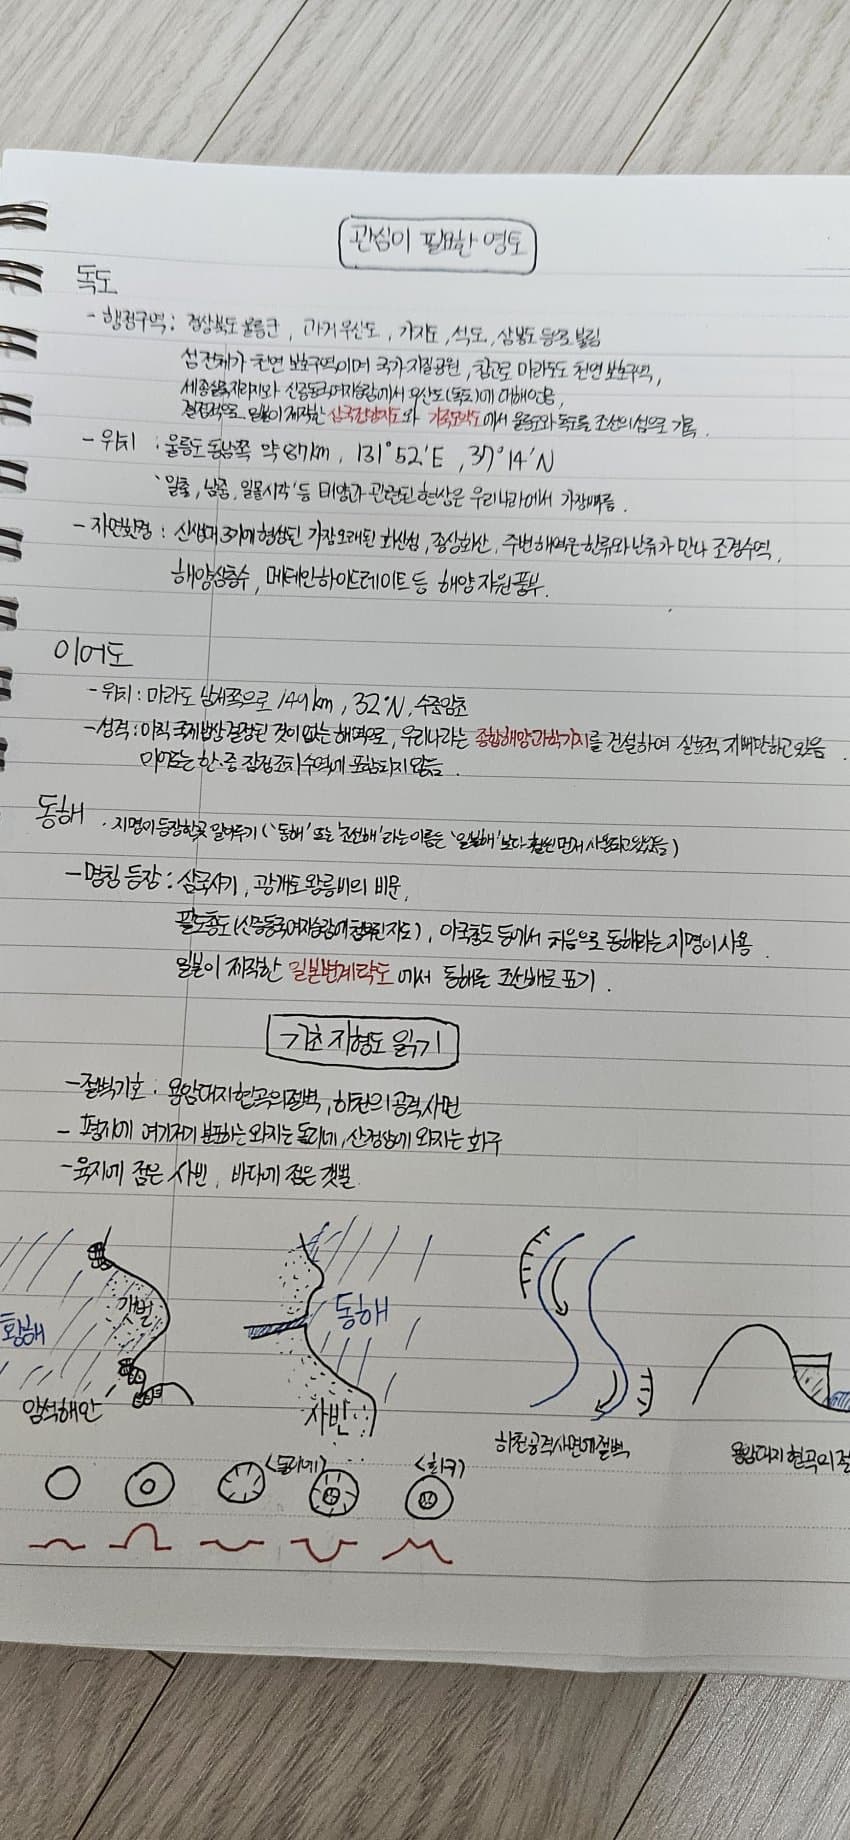 관심이 필요한 영토
독도
- 행정구역 : 경상북도 울릉군, 과거 우산도, 가지도, 석도, 삼봉도 등으로 불림
섬 전체가 천연 보호구역이며 국가지질공원, 참고로 마라도도 천연 보호구역,
세종실록지리지와 신증동국여지승람에서 우산도(독도)에 대해 언급,
결정적으로 일본이 제작한 삼국접양지도와 기죽도약도에서 울릉도와 독도를 조선의 섬으로 기록.
- 위치 : 울릉도 동남쪽 약 87km, 131°52′E, 37°14′N
'일출, 남중, 일몰시각' 등 태양과 관련된 현상은 우리나라에서 가장 빠름.
- 자연환경 : 신생대 3기에 형성된 가장 오래된 화산섬, 종상화산, 주변 해역은 한류와 난류가 만나 조경수역,
해양심층수, 메테인하이드레이트 등 해양 자원 풍부.
이어도
- 위치 : 마라도 남서쪽으로 149km, 32°N, 수중암초
- 성격 : 아직 국제법상 결정된 것이 없는 해역으로, 우리나라는 종합해양과학기지를 건설하여 실효적 지배만하고 있음.
이어도는 한·중 잠정조치수역에 포함되지 않음.
동해 · 지명이 등장한 곳 알아두기 ('동해' 또는 '조선해'라는 이름은 '일본해'보다 훨씬 먼저 사용되고 있었음)
- 명칭 등장 : 삼국사기, 광개토 왕릉비의 비문,
팔도총도(신증동국여지승람에 첨부된 지도), 아국총도 등에서 처음으로 동해라는 지명이 사용.
일본이 제작한 일본변계략도에서 동해를 조선해로 표기.
기초 지형도 읽기
- 절벽기호 : 용암대지 협곡의 절벽, 하천의 공격사면
- 평지에 여기저기 분포하는 와지는 돌리네, 산정상에 와지는 화구
- 육지에 점은 사빈, 바다에 점은 갯벌.
황해
갯벌
암석해안
동해
사빈
하천 공격사면에 절벽
용암대지 협곡의 절
<돌리네>
<화구>